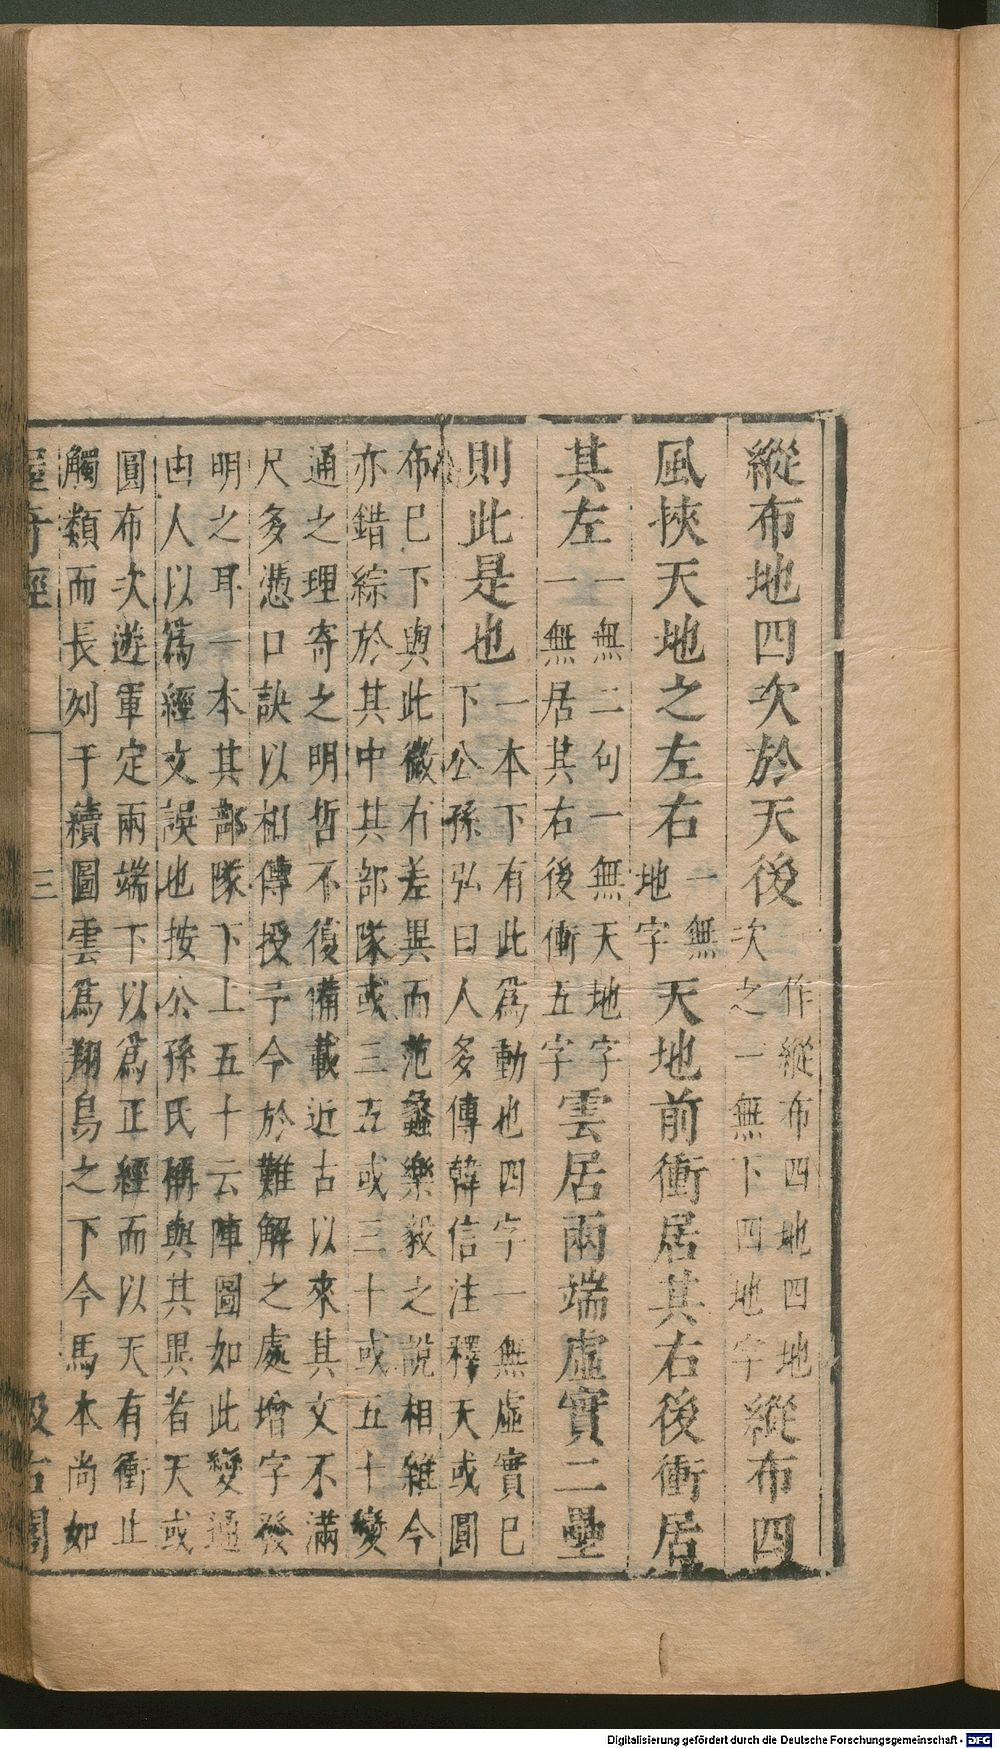 縱布地四次於天後一作縱布四地四地次之一無下四地字縱布四
風挾天地之左右一無地字天地前衝居其右後衝居
其左一無二句一無天地字一無居其右後衝五字雲居兩端虛實二壘
則此是也一本下有此爲動也四字一無虛實已下公孫弘曰人多傳韓信注釋天或圓
布已下與此微有差異而范蠡樂毅之說相雜今
亦錯綜於其中其部隊或三五或三十或五十變
通之理寄之明哲不復備載近古以來其文不滿
尺多憑口訣以相傳授予今於難解之處增字發
明之耳一本其部隊下上五十云陣圖如此變通
由人以爲經文誤也按公孫氏稱與其異者天或
圓布次遊軍定兩端下以爲正經而以天有衝止
觸類而長列于續圖雲爲翔鳥之下今馬本尚如
握奇經 三 汲古閣
Digitalisierung gefördert durch die Deutsche Forschungsgemeinschaft - DFG